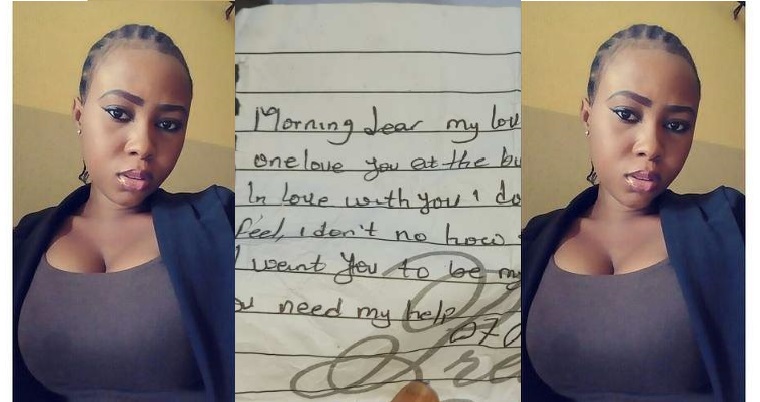 Morning dear my lov
one love you at the bu
In love with you i do
feel, i don't no how
I want you to be my
u need my help
070